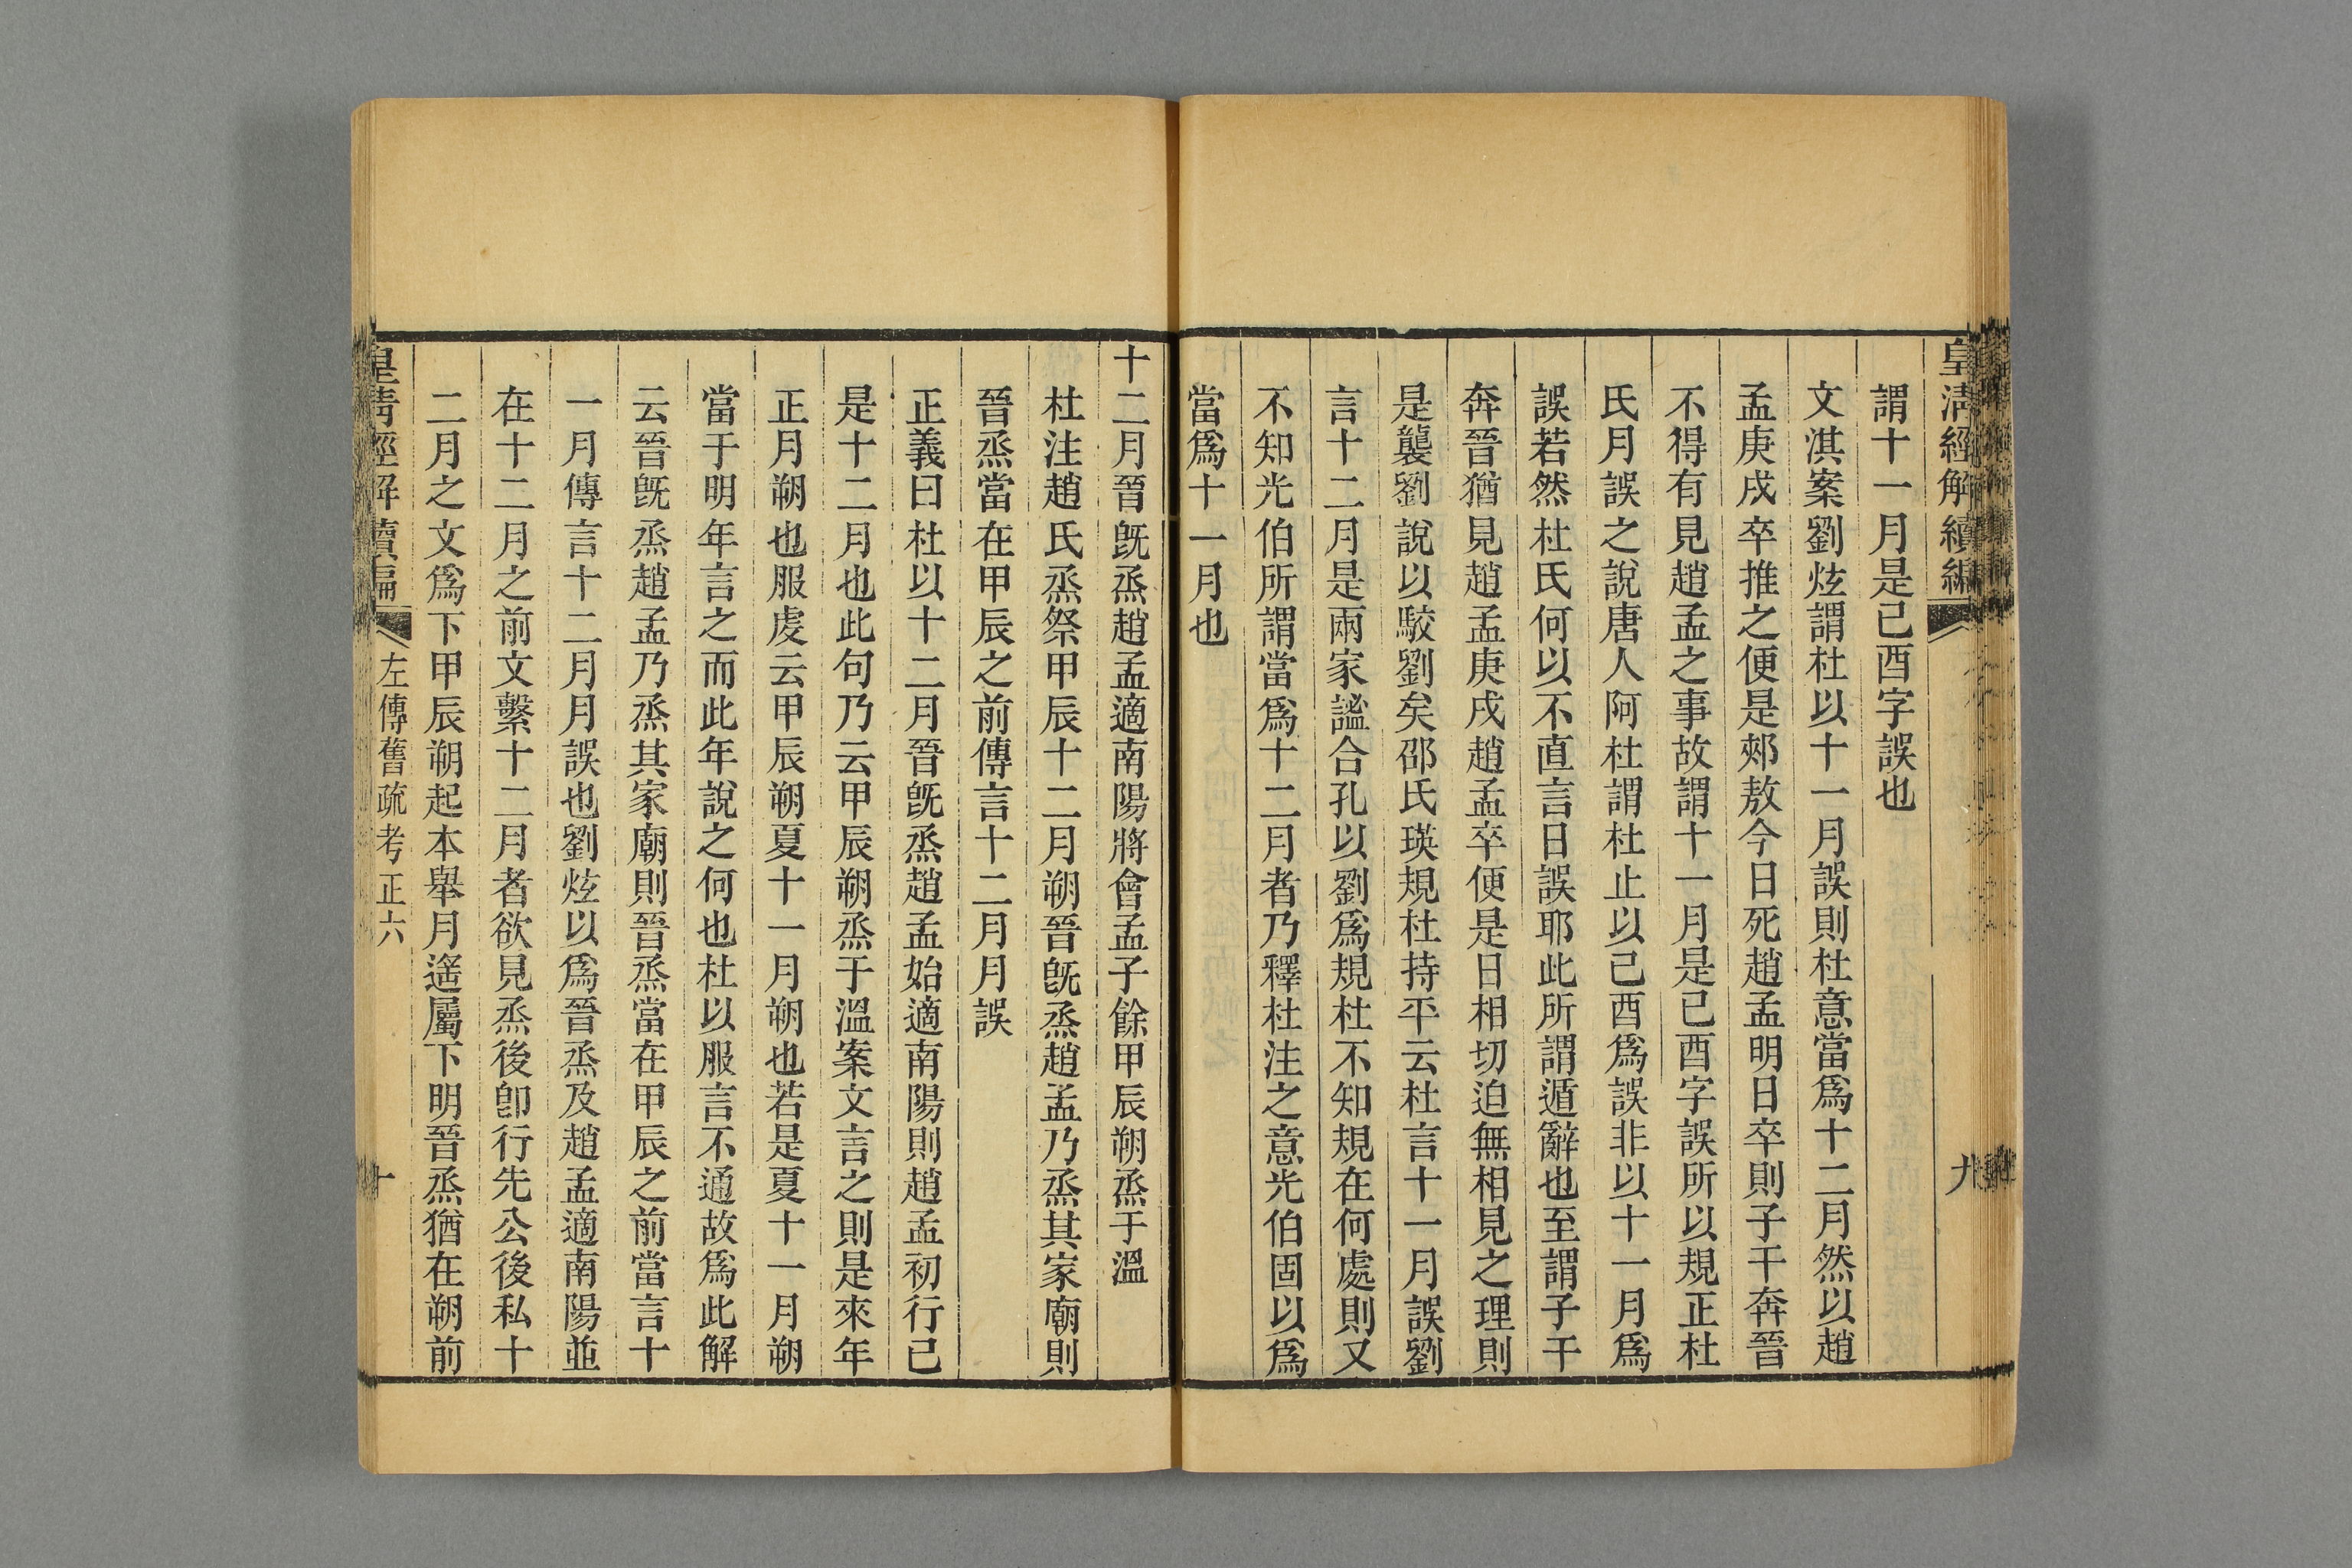 皇清經解續編
九
謂十一月是已酉字誤也
文淇案劉炫謂杜以十一月誤則杜意當爲十二月然以趙
孟庚戌卒推之便是郟敖今日死趙孟明日卒則子干奔晉
不得有見趙孟之事故謂十一月是已酉字誤所以規正杜
氏月誤之說唐人阿杜謂杜止以己酉爲誤非以十一月爲
誤若然杜氏何以不直言日誤耶此所謂遁辭也至謂子干
奔晉猶見趙孟庚戌趙孟卒便是日相切迫無相見之理則
是襲劉說以駮劉矣邵氏瑛規杜持平云杜言十一月誤劉
言十二月是兩家謐合孔以劉爲規杜不知規在何處則又
不知光伯所謂當爲十二月者乃釋杜注之意光伯固以爲
當爲十一月也
十二月晉旣烝趙孟適南陽將會孟子餘甲辰朔烝于溫
杜注趙氏烝祭甲辰十二月朔晉旣烝趙孟乃烝其家廟則
晉烝當在甲辰之前傳言十二月月誤
正義曰杜以十二月晉旣烝趙孟始適南陽則趙孟初行已
是十二月也此句乃云甲辰朔烝于溫案文言之則是來年
正月朔也服虔云甲辰朔夏十一月朔也若是夏十一月朔
當于明年言之而此年說之何也杜以服言不通故爲此解
云晉旣烝趙孟乃烝其家廟則晉烝當在甲辰之前當言十
一月傳言十二月月誤也劉炫以爲晉烝及趙孟適南陽並
在十二月之前文繫十二月者欲見烝後卽行先公後私十
二月之文爲下甲辰朔起本舉月遙屬下明晉烝猶在朔前
皇清經解續編
左傳舊疏考正六
十